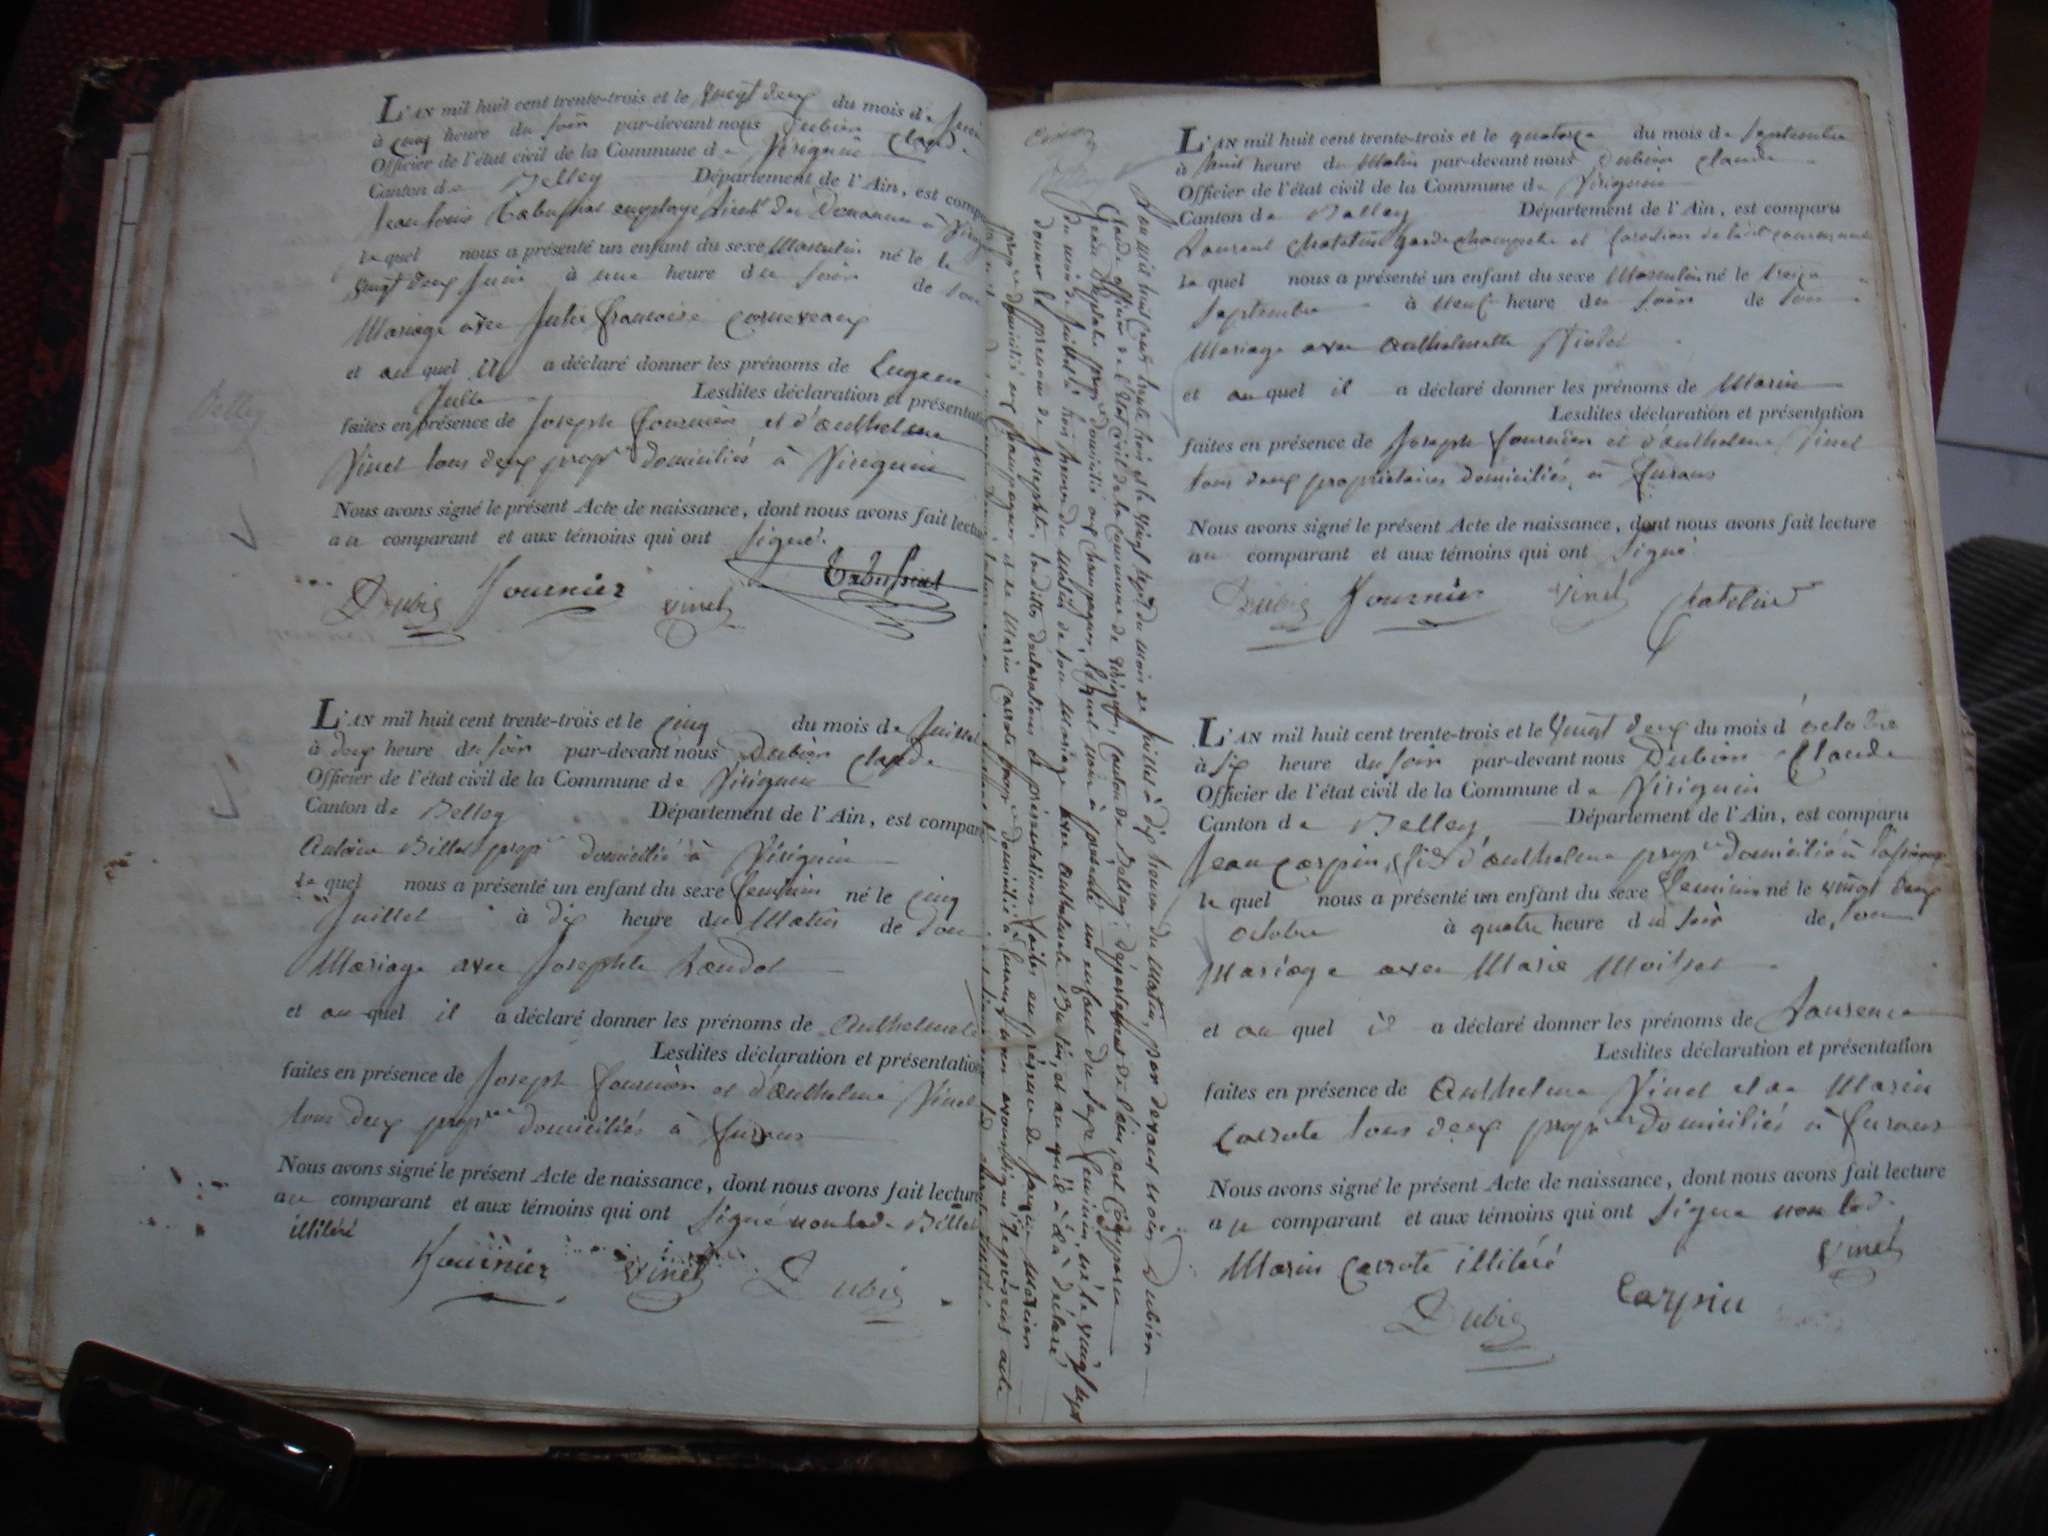 L'AN mil huit cent trente-trois et le vingt deux du mois de Juin
à cinq heure du soir par-devant nous Dubien Claude
Officier de l'état civil de la Commune de Virignin
Canton de Belley Département de l'Ain, est comparu
Jean Louis employé des Douanes à
le quel nous a présenté un enfant du sexe Masculin né le
vingt deux Juin à une heure du soir de son
Mariage avec Julie françoise
et au quel il a déclaré donner les prénoms de Eugene
Julle Lesdites déclaration et présentation
faites en présence de Joseph fournier et d'Anthelme
Vinet tous deux propre domiciliés à Virignin
Nous avons signé le présent Acte de naissance, dont nous avons fait lecture
au comparant et aux témoins qui ont signé.
Dubie Fournier vinet
L'AN mil huit cent trente-trois et le cinq du mois de Juillet
à deux heure du soir par-devant nous Dubien Claude
Officier de l'état civil de la Commune de Virignin
Canton de Belley Département de l'Ain, est comparu
Antoine Billet propre domicilié à Virignin
le quel nous a présenté un enfant du sexe feminin né le cinq
Juillet à dix heure du Matin de son
Mariage avec Josephte Landot
et au quel il a déclaré donner les prénoms de Anthelmete
Lesdites déclaration et présentation
faites en présence de Joseph fournier et d'Anthelme Vinet
tous deux propres domiciliés à furans
Nous avons signé le présent Acte de naissance, dont nous avons fait lecture
au comparant et aux témoins qui ont signé non led Billet
illiteré
Fournier vinet Dubie
L'an mil huit cent trente trois et le vingt sept du mois de Juillet à dix heures du Matin, par devant nous Dubien
Claude officier de l'état civil de la Commune de Virignin, Canton de Belley, département de l'ain, est comparu
propre domicilié au champagner, lequel nous à présenté un enfant du sexe feminin, né le vingt sept
du mois de Juillet à trois heures du Matin de son Mariage avec Anthelmete et au quel il à déclaré
donner le prenom de Josephte, lesdittes declarations et présentation faites en présence de
propre domicilié au champagner et de Marin carrote propre domicilié à furans, nous avons signé le présent acte
L'AN mil huit cent trente-trois et le quatorze du mois de Septembre
à huit heure du Matin par-devant nous Dubien Claude
Officier de l'état civil de la Commune de Virignin
Canton de Belley Département de l'Ain, est comparu
Laurent Chatelin garde champetre et de ladit commune
le quel nous a présenté un enfant du sexe Masculin né le treize
Septembre à neuf heure du soir de son
Mariage avec Anthelmette
et au quel il a déclaré donner les prénoms de Marin
Lesdites déclaration et présentation
faites en présence de Joseph fournier et d'Anthelme Vinet
tous deux propriétaires domiciliés à furans
Nous avons signé le présent Acte de naissance, dont nous avons fait lecture
au comparant et aux témoins qui ont signé
Dubie Fournier vinet Chatelin
L'AN mil huit cent trente-trois et le vingt deux du mois d'octobre
à six heure du soir par-devant nous Dubien Claude
Officier de l'état civil de la Commune de Virignin
Canton de Belley Département de l'Ain, est comparu
Jean Carpin, fils d'anthelme propre domicilié à
le quel nous a présenté un enfant du sexe feminin né le vingt deux
octobre à quatre heure du soir de son
Mariage avec Marie
et au quel il a déclaré donner les prénoms de Laurence
Lesdites déclaration et présentation
faites en présence de Anthelme Vinet et de Marin
Carrote tous deux propres domiciliés à furans
Nous avons signé le présent Acte de naissance, dont nous avons fait lecture
au comparant et aux témoins qui ont signé non led.
Marin Carrote illiteré vinet
Dubie Carpin